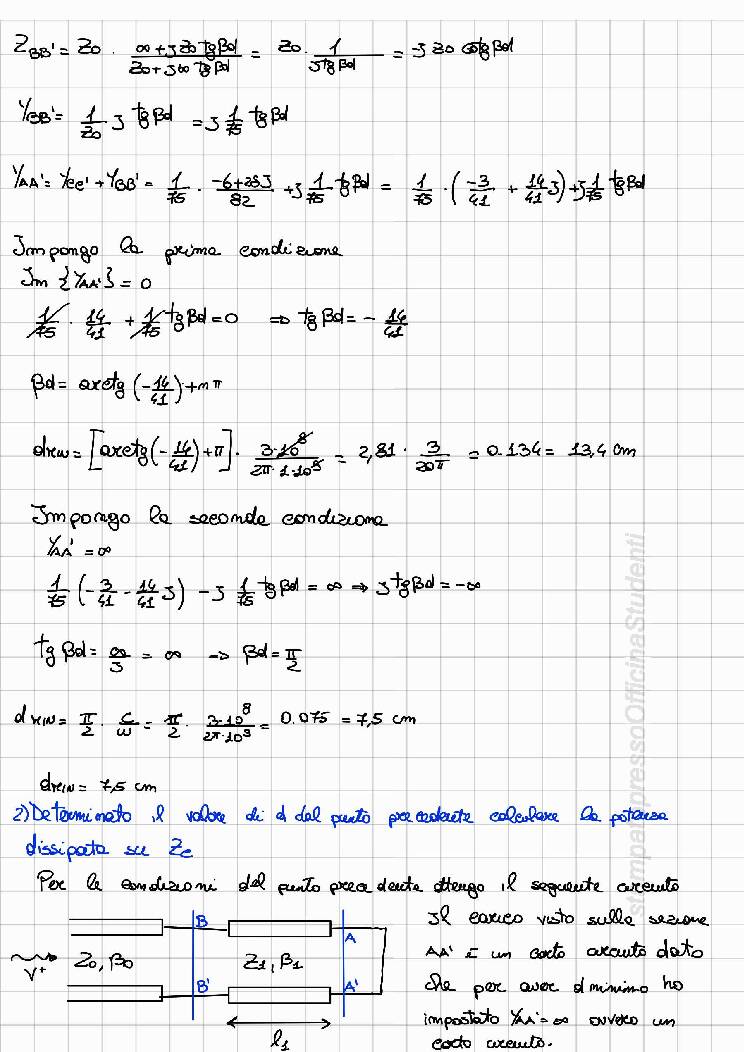 Z_BB' = Z0 · (∞ + j Z0 tg βd) / (Z0 + j ∞ tg βd) = Z0 · 1 / (j tg βd) = -j Z0 cotg βd
Y_BB' = 1/Z0 j tg βd = j 1/75 tg βd
Y_AA' = Y_CC' + Y_BB' = 1/75 · (-6+28j)/82 + j 1/75 tg βd = 1/75 · (-3/41 + 14/41 j) + j 1/75 tg βd
Impongo la prima condizione
Im {Y_AA'} = 0
1/75 · 14/41 + 1/75 tg βd = 0 ⇒ tg βd = - 14/41
βd = arctg (-14/41) + nπ
dMIN = [arctg(-14/41) + π] · 3·10^8 / 2π·1·10^9 = 2,81 · 3/20π = 0.134 = 13,4 cm
Impongo la seconda condizione
Y_AA' = ∞
1/75 (-3/41 - 14/41 j) - j 1/75 tg βd = ∞ ⇒ j tg βd = -∞
tg βd = ∞/j = ∞ → βd = π/2
dMIN = π/2 · c/ω = π/2 · 3·10^8 / 2π·10^9 = 0.075 = 7,5 cm
dMIN = 7,5 cm
2) Determinato il valore di d dal punto precedente calcolare la potenza
dissipata su Zc
Per le condizioni del punto precedente ottengo il seguente circuito
B
A
V+
Z0, β0
Z1, β1
B'
A'
l1
Il carico visto sulla sezione
AA' è un corto circuito dato
che per aver d minimo ho
impostato Y_AA' = ∞ ovvero un
corto circuito.
stampatopressoOfficinaStudenti